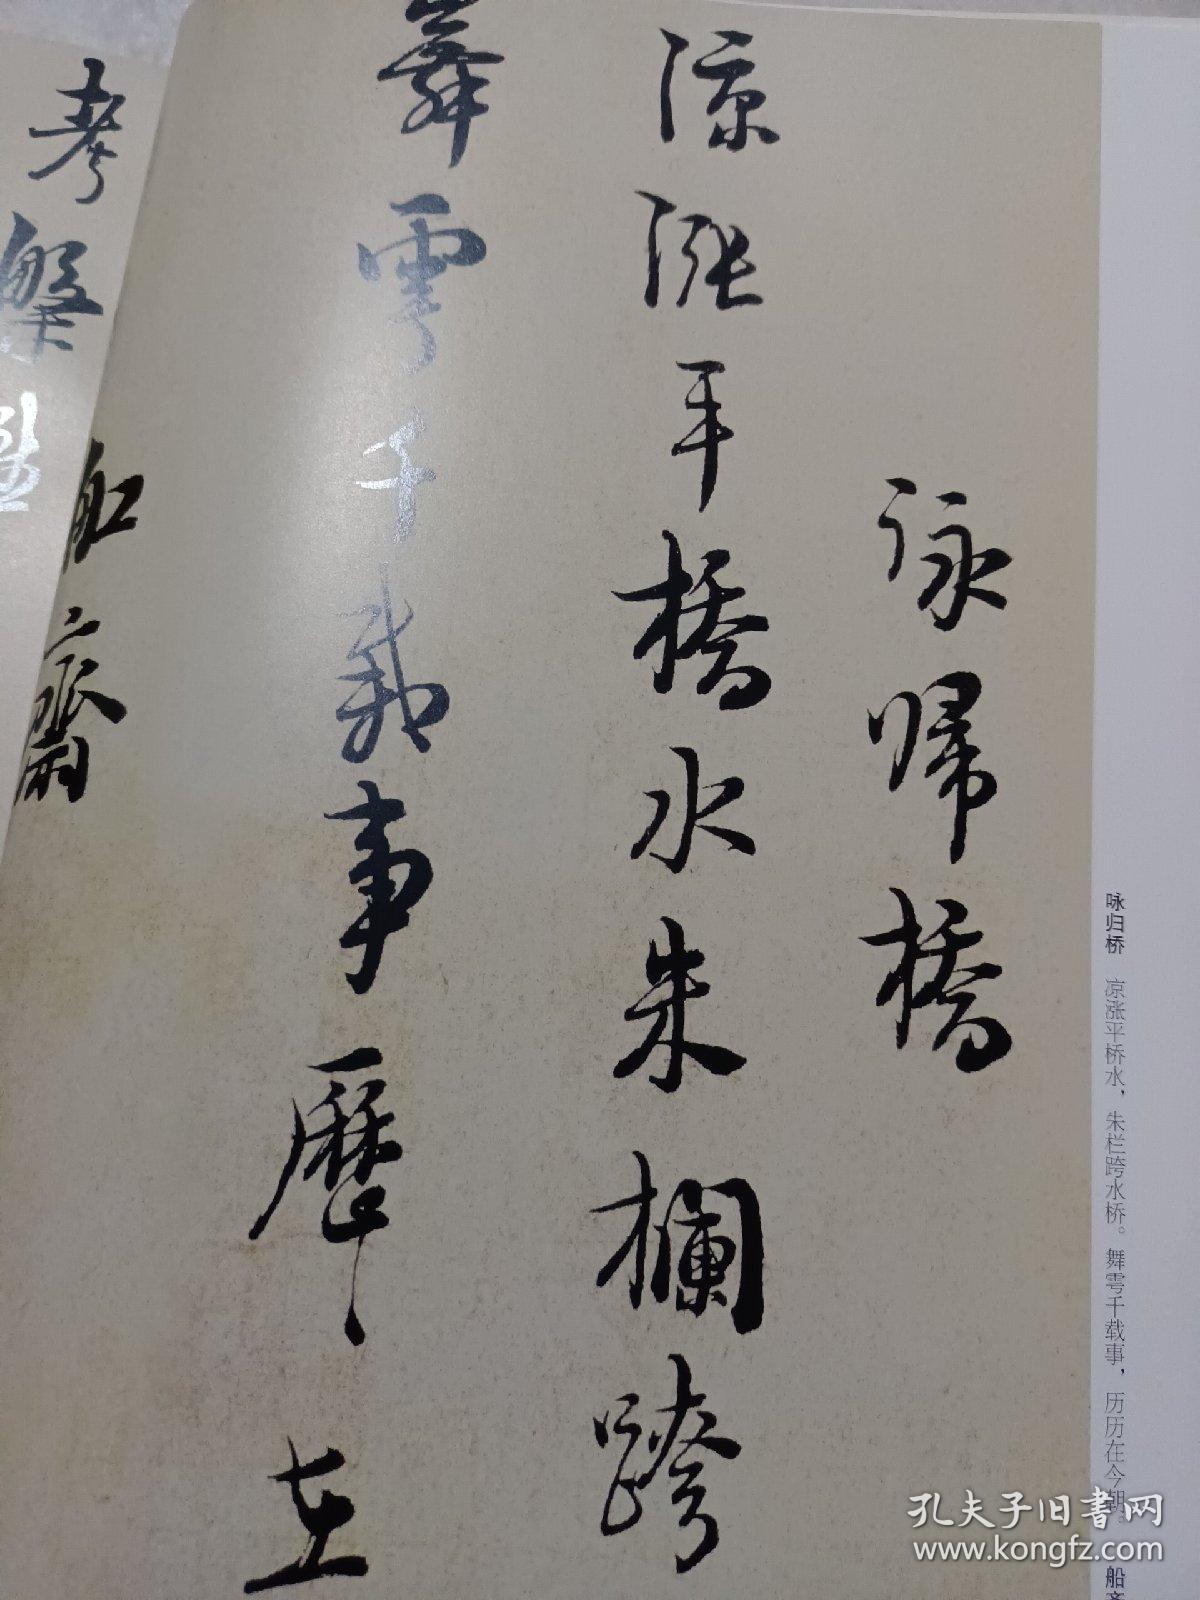 詠歸橋
涼漲平橋水朱欄跨
舞雩千載事歷〻在
船齋
考槃
咏归桥　凉涨平桥水，朱栏跨水桥。舞雩千载事，历历在今朝。
船斋
孔夫子旧书网
www.kongfz.com